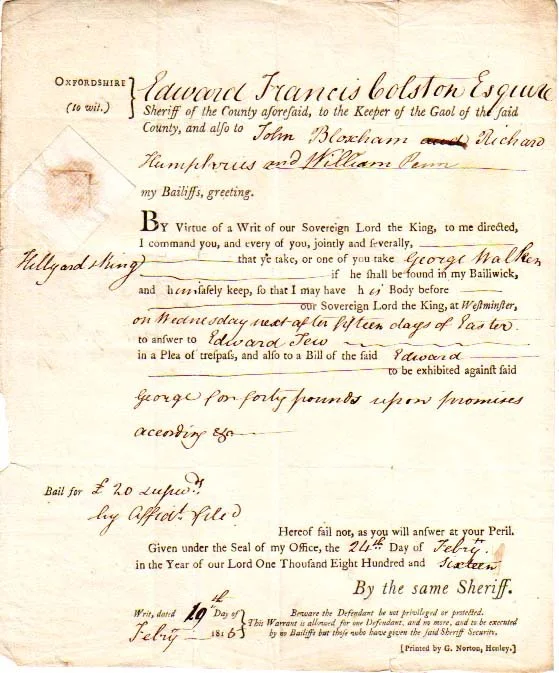 OXFORDSHIRE
(to wit.)
Edward Francis Colston Esquire
Sheriff of the County aforeſaid, to the Keeper of the Gaol of the ſaid
County, and alſo to John Bloxham and Richard
Humphries and William Penn
my Bailiffs, greeting.
BY Virtue of a Writ of our Sovereign Lord the King, to me directed,
I command you, and every of you, jointly and ſeverally,
Hillyard & King that ye take, or one of you take George Walker
if he ſhall be found in my Bailiwick,
and him ſafely keep, ſo that I may have his Body before
our Sovereign Lord the King, at Weſtminſter,
on Wednesday next after fifteen days of Easter
to anſwer to Edward Tew
in a Plea of treſpaſs, and alſo to a Bill of the ſaid Edward
to be exhibited againſt ſaid
George for forty pounds upon promises
acording &c
Bail for £20
by Affidt. filed
Hereof fail not, as you will anſwer at your Peril.
Given under the Seal of my Office, the 24th Day of Febry.
in the Year of our Lord One Thouſand Eight Hundred and Sixteen
By the ſame Sheriff.
Writ, dated 19th Day of
Febry 1816
Beware the Defendant be not privileged or protected.
This Warrant is allowed for one Defendant, and no more, and to be executed
by no Bailiffs but thoſe who have given the ſaid Sheriff Security.
[Printed by G. Norton, Henley.]